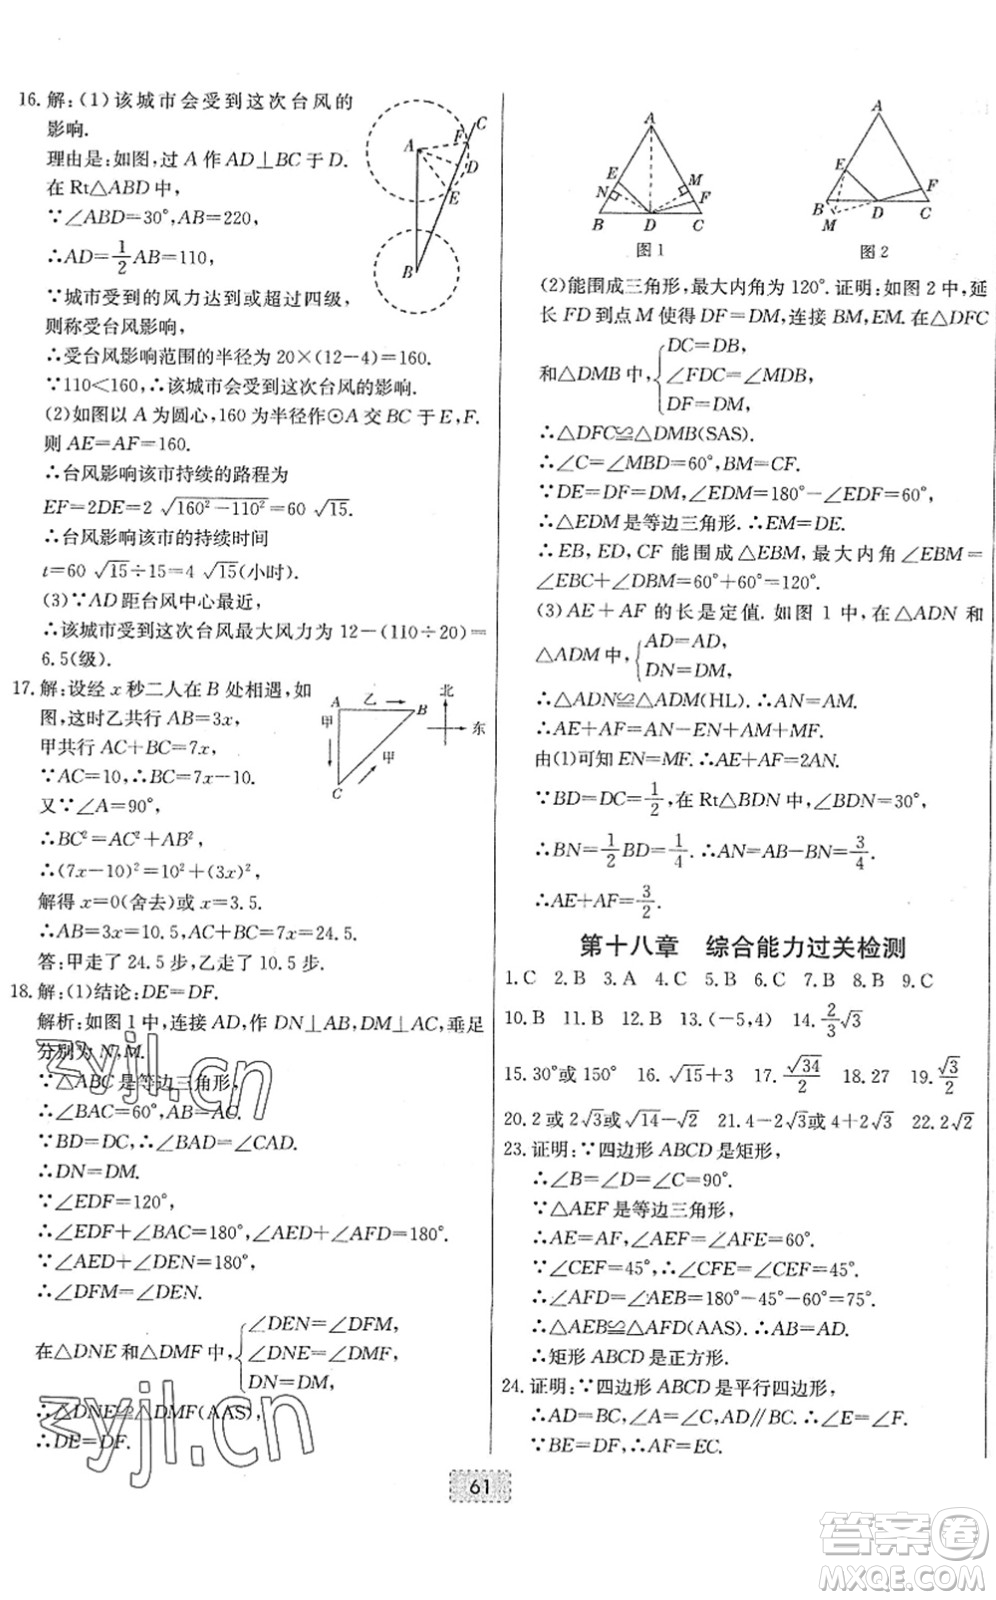 16. 解:(1)该城市会受到这次台风的
影响.
理由是:如图,过 A 作 AD⊥BC 于 D.
在 Rt△ABD 中,
∵∠ABD=30°,AB=220,
∴AD=1/2AB=110,
∵城市受到的风力达到或超过四级,
则称受台风影响,
∴受台风影响范围的半径为 20×(12-4)=160.
∵110<160,∴该城市会受到这次台风的影响.
(2)如图以 A 为圆心,160 为半径作⊙A 交 BC 于 E,F.
则 AE=AF=160.
∴台风影响该市持续的路程为
EF=2DE=2 √(160²-110²)=60 √15.
∴台风影响该市的持续时间
t=60 √15÷15=4 √15(小时).
(3)∵AD 距台风中心最近,
∴该城市受到这次台风最大风力为 12-(110÷20)=
6.5(级).
A
F
C
D
E
B
17. 解:设经 x 秒二人在 B 处相遇,如
图,这时乙共行 AB=3x,
甲共行 AC+BC=7x,
∵AC=10,∴BC=7x-10.
又∵∠A=90°,
∴BC²=AC²+AB²,
∴(7x-10)²=10²+(3x)²,
解得 x=0(舍去)或 x=3.5.
∴AB=3x=10.5,AC+BC=24.5.
答:甲走了 24.5 步,乙走了 10.5 步.
A
乙
B
甲
甲
C
北
东
18. 解:(1)结论:DE=DF.
解析:如图 1 中,连接 AD,作 DN⊥AB,DM⊥AC,垂足
分别为 N,M.
∵△ABC 是等边三角形,
∴∠BAC=60°,AB=AC.
∵BD=DC,∴∠BAD=∠CAD.
∴DN=DM.
∵∠EDF=120°,
∴∠EDF+∠BAC=180°,∠AED+∠AFD=180°.
∵∠AED+∠DEN=180°,
∴∠DFM=∠DEN.
在△DNE 和△DMF 中,{∠DEN=∠DFM,
∠DNE=∠DMF,
DN=DM,
∴△DNE≌△DMF(AAS).
∴DE=DF.
A
E
N
M
F
B
D
C
图 1
A
E
F
B
M
D
C
图 2
(2)能围成三角形,最大内角为 120°. 证明:如图 2 中,延
长 FD 到点 M 使得 DF=DM,连接 BM,EM. 在△DFC
和△DMB 中,{DC=DB,
∠FDC=∠MDB,
DF=DM,
∴△DFC≌△DMB(SAS).
∴∠C=∠MBD=60°,BM=CF.
∵DE=DF=DM,∠EDM=180°-∠EDF=60°,
∴△EDM 是等边三角形.∴EM=DE.
∴EB,ED,CF 能围成△EBM,最大内角∠EBM=
∠EBC+∠DBM=60°+60°=120°.
(3)AE+AF 的长是定值. 如图 1 中,在△ADN 和
△ADM 中,{AD=AD,
DN=DM,
∴△ADN≌△ADM(HL).∴AN=AM.
∴AE+AF=AN-EN+AM+MF.
由(1)可知 EN=MF.∴AE+AF=2AN.
∵BD=DC=1/2,在 Rt△BDN 中,∠BDN=30°,
∴BN=1/2BD=1/4. ∴AN=AB-BN=3/4.
∴AE+AF=3/2.
第十八章 综合能力过关检测
1. C 2. B 3. A 4. C 5. B 6. C 7. B 8. B 9. C
10. B 11. B 12. B 13. (-5,4) 14. 2/3√3
15. 30°或 150° 16. √15+3 17. √34/2 18. 27 19. √3/2
20. 2 或 2√3或√14-√2 21. 4-2√3或 4+2√3 22. 2√2
23. 证明:∵四边形 ABCD 是矩形,
∴∠B=∠D=∠C=90°.
∵△AEF 是等边三角形,
∴AE=AF,∠AEF=∠AFE=60°.
∵∠CEF=45°,∴∠CFE=∠CEF=45°.
∴∠AFD=∠AEB=180°-45°-60°=75°.
∴△AEB≌△AFD(AAS).∴AB=AD.
∴矩形 ABCD 是正方形.
24. 证明:∵四边形 ABCD 是平行四边形,
∴AD=BC,∠A=∠C,AD∥BC.∴∠E=∠F.
∵BE=DF,∴AF=EC.
61
zyjl.cn
zyjl.cn
答案圈
MXQE.COM